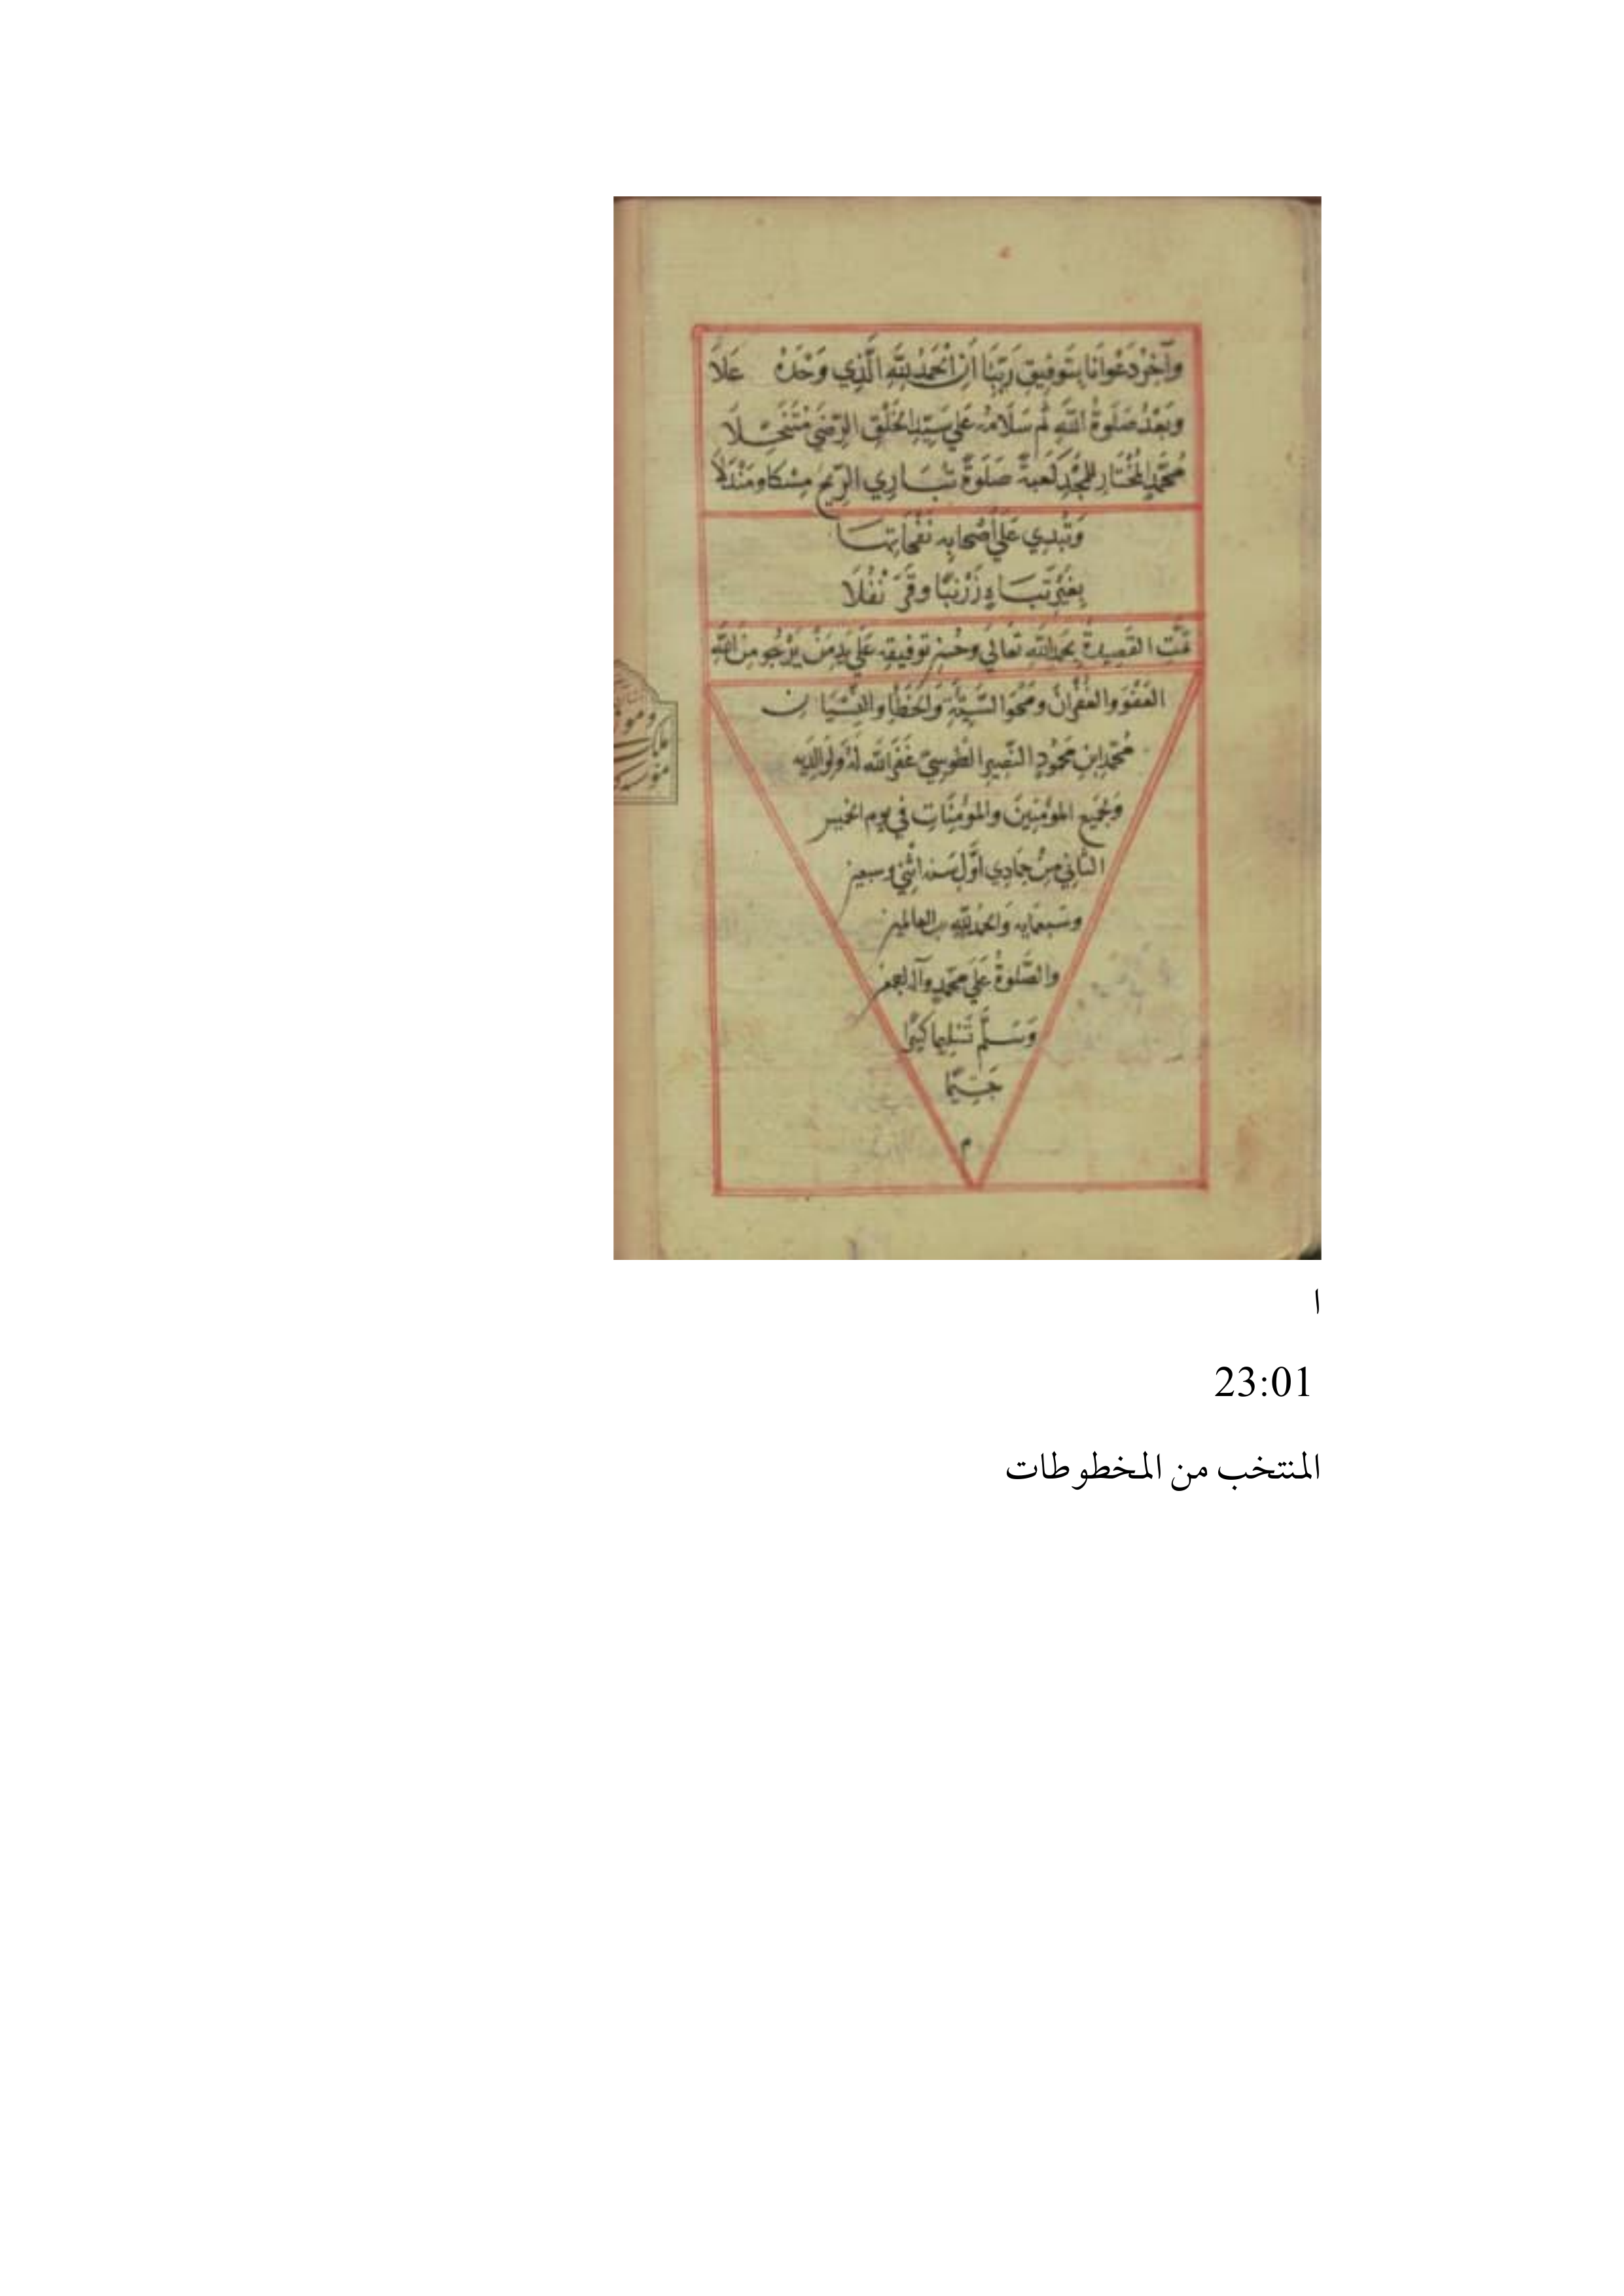 وَآخِرُ دَعْوَانَا بِتَوْفِيقِ رَبِّنَا أَنِ الْحَمْدُ لِلَّهِ الَّذِي وَحْدَهُ عَلَا
وَبَعْدُ صَلَوةُ اللهِ ثُمَّ سَلَامُهُ عَلَي سَيِّدِ الخَلْقِ الرِّضَي مُتَنَخِّلَا
مُحَمَّدٍ المُخْتَارِ لِلْمَجْدِ كَعْبَةً صَلَوةً تُبَارِي الرِّيحَ مِسْكًا وَمَنْدَلَا
وَتُبْدِي عَلَي أَصْحَابِهِ نَفَحَاتِهَا
بِغَيْرِ تَنَاهٍ زَرْنَبًا وَقَرَنْفُلَا
تمَّتِ القَصِيدةُ بِحَمْدِ اللهِ تَعَالَي وَحُسْنِ تَوْفِيقِهِ عَلَي يَدِ مَنْ يَرْجُو مِنَ اللهِ
العَفْوَ وَالغُفْرَانَ وَمَحْوَ السَّيِّئَةِ وَالخَطَأِ وَالنِّسْيَانِ
مُحَمَّدِ ابْنِ مَحْمُودٍ النَّصِيرِ الطُّوسِيّ غَفَرَ اللهُ لَهُ وَلِوَالِدَيهِ
وَلِجَمِيعِ المُؤْمِنِينَ وَالمُؤْمِنَاتِ فِي يَومِ الخميس
الثَّانِي مِنْ جمَادِي أَوَّلِ سَنه اثْنَي وسبعين
وَسَبعمايه وَالحمدُ لِلَّهِ رب العالمين
والصَّلوةُ عَلَي مُحَمَّدٍ وآله اجمعين
وَسَلَّمَ تَسْلِيمًا كثيرًا
م
ا
23:01
المنتخب من المخطوطات